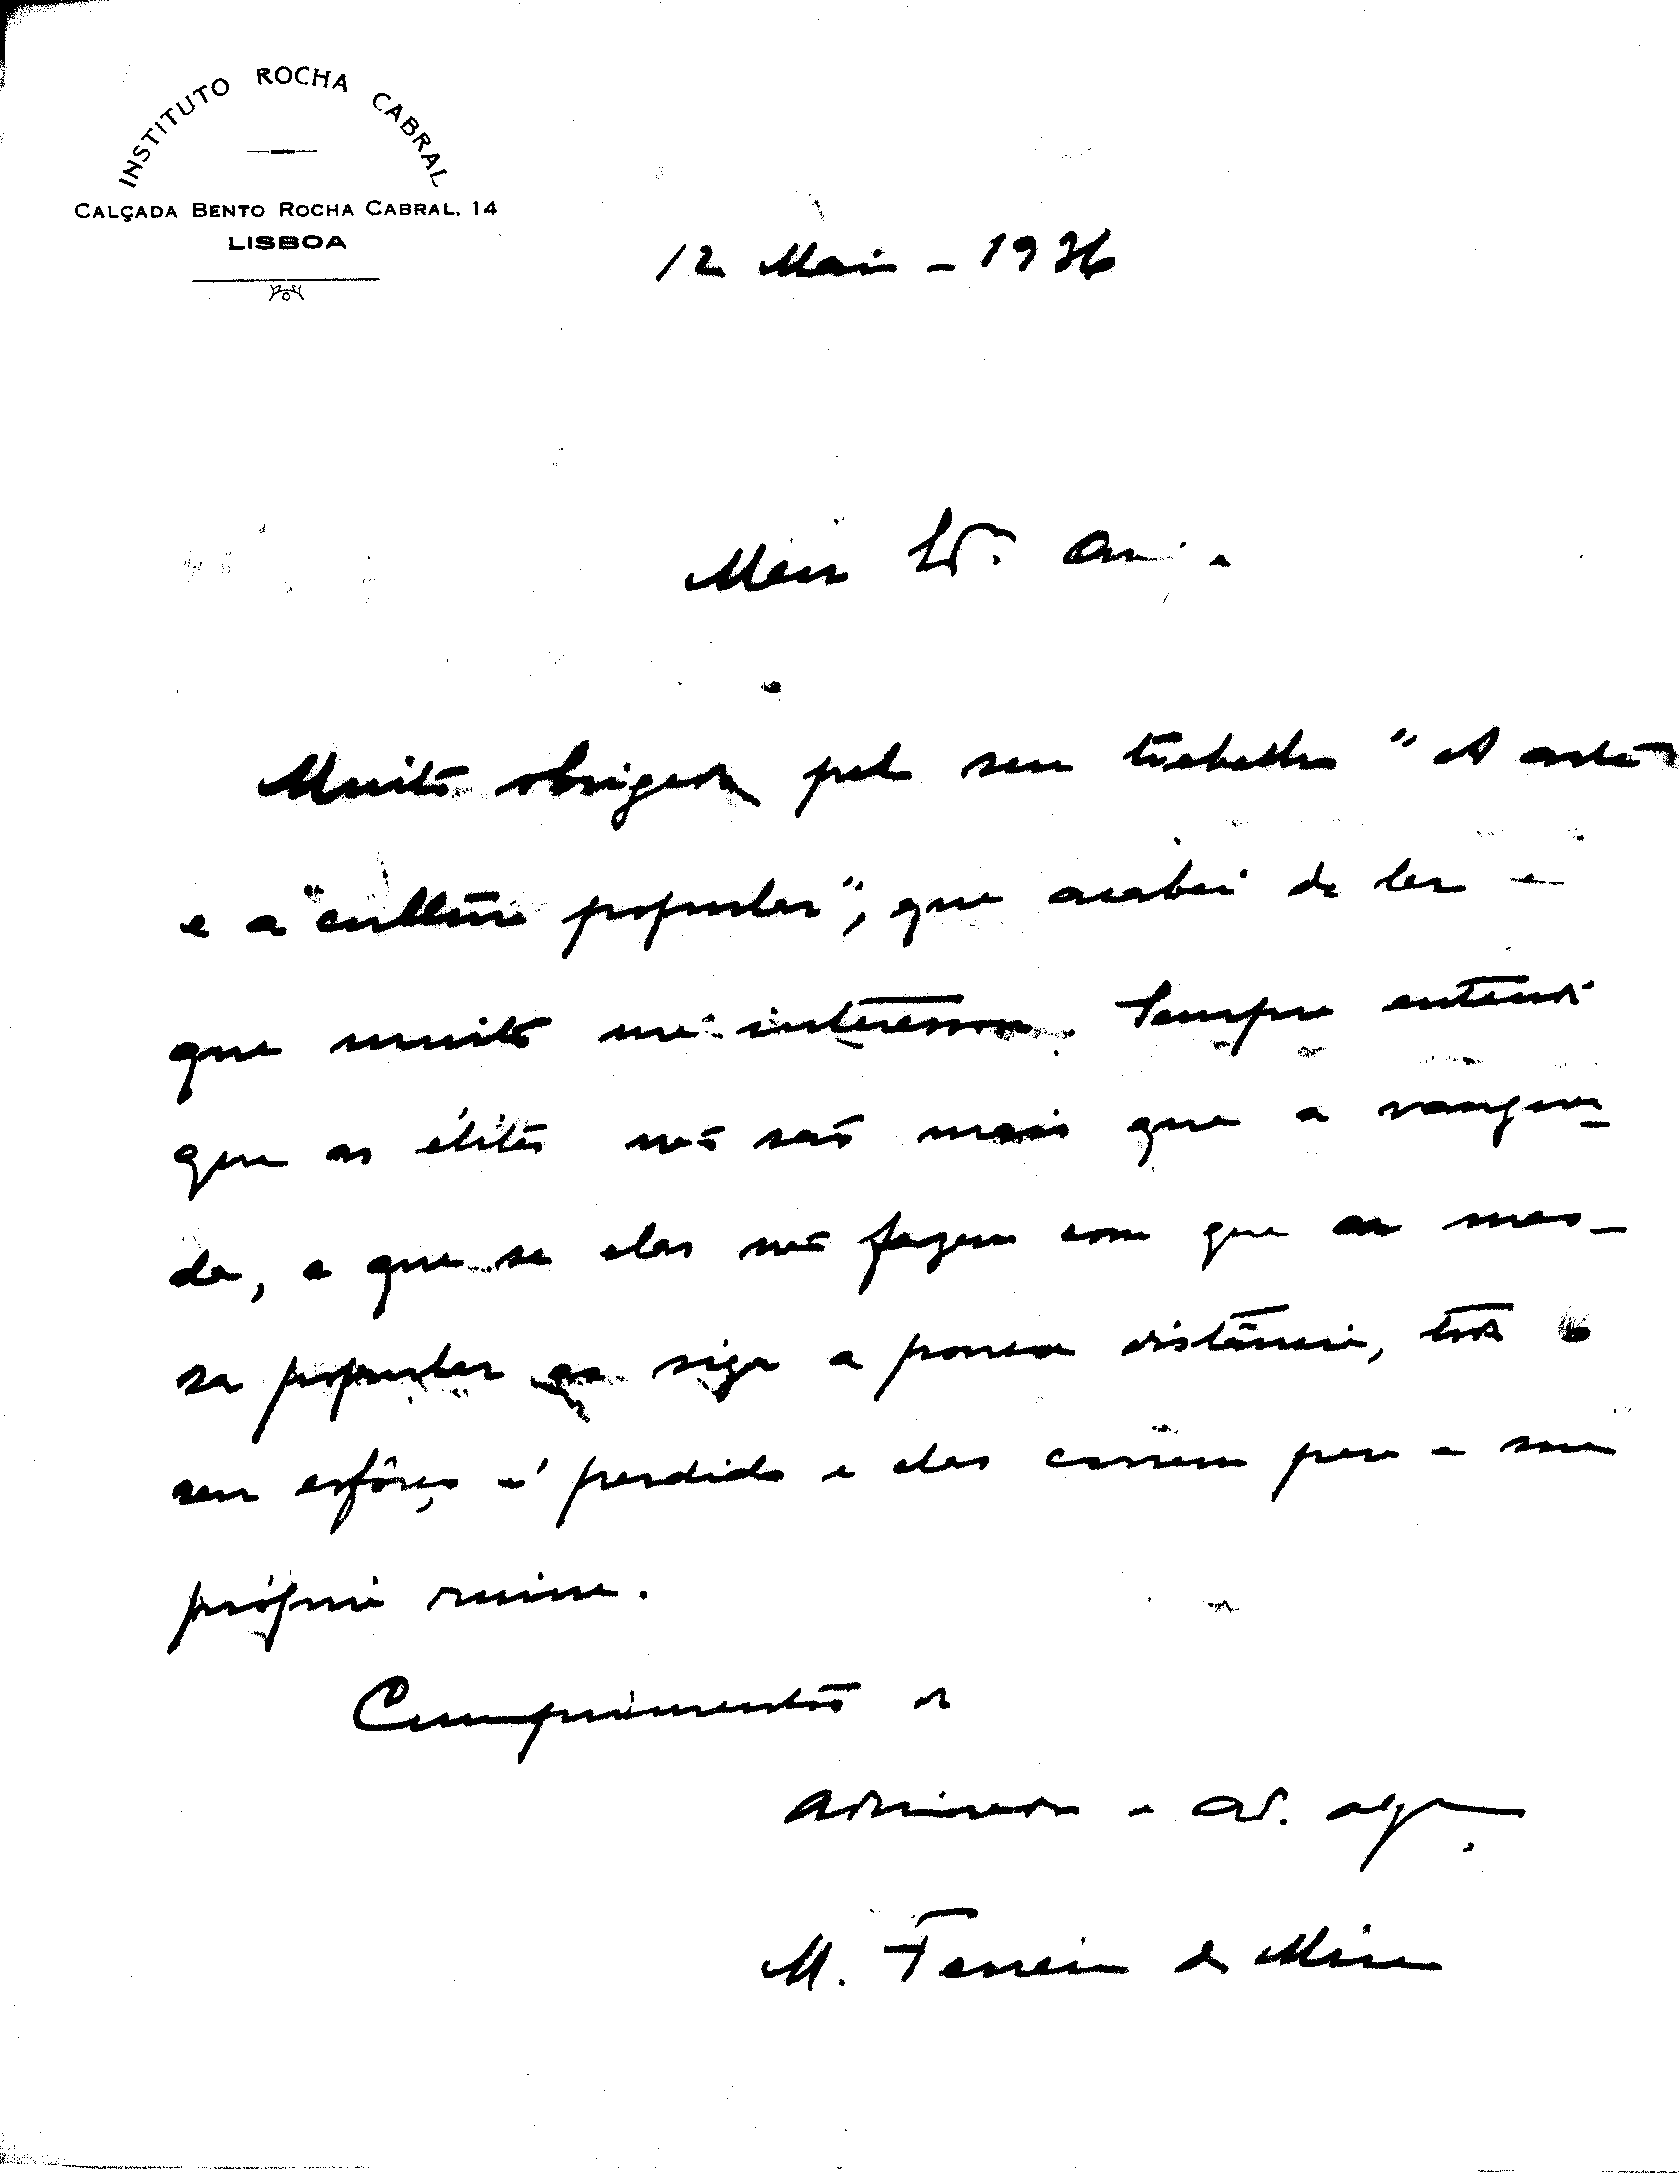 INSTITUTO ROCHA CABRAL
CALÇADA BENTO ROCHA CABRAL, 14
LISBOA
12 Maio - 1936
Meu
Muito obrigado pelo seu trabalho "A arte
e a "cultura popular", que acabei de ler e
que muito me interessou. Sempre entendi
que as élites não são mais que a vanguar-
da, e que se elas não fazem com que a mas-
sa popular as siga a pouca distância, todo o
seu esfôrço é perdido e elas correm para a sua
própria ruina.
Cumprimentos de
admirador e
M. Ferreira de Mira